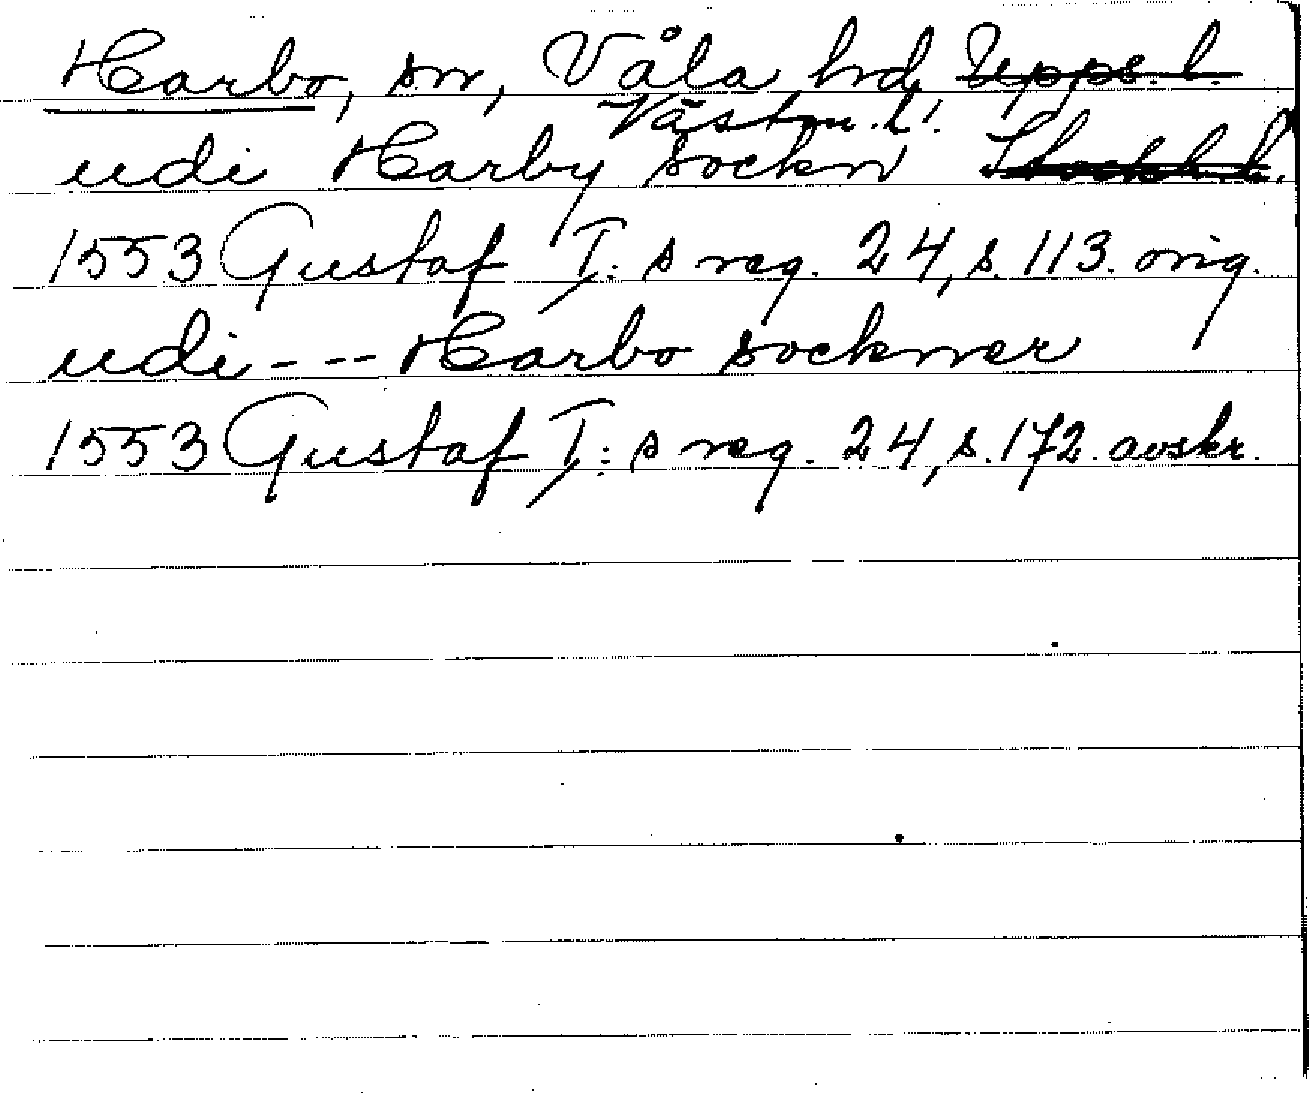 Harbo, sn, Våla hd, Upps. l.
Västm. l.
udi Harby sockn Stockh. l.
1553 Gustaf I: s reg. 24, s. 113. orig.
udi --- Harbo socknner
1553 Gustaf I: s reg. 24, s. 172. avskr.